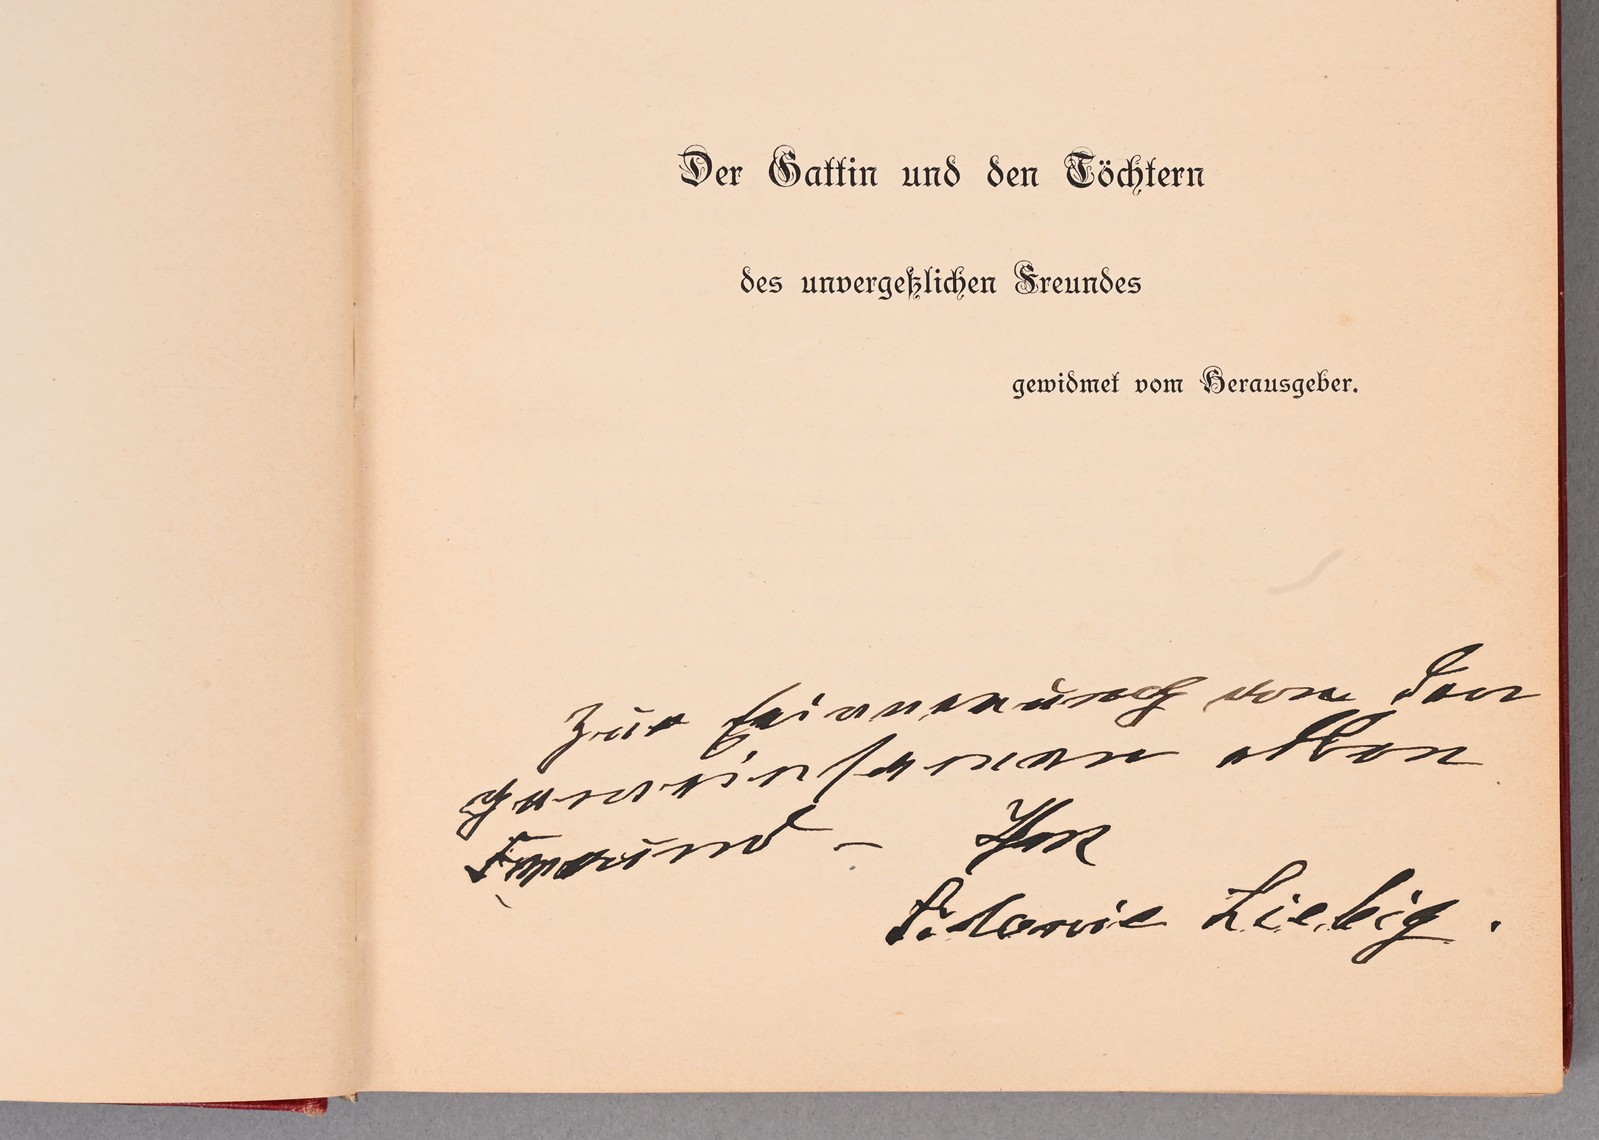 Der Gattin und den Töchtern
des unvergeßlichen Freundes
gewidmet vom Herausgeber.
Zur Erinnerung von den
gemeinsamen
Freund –
Marie Liebig.